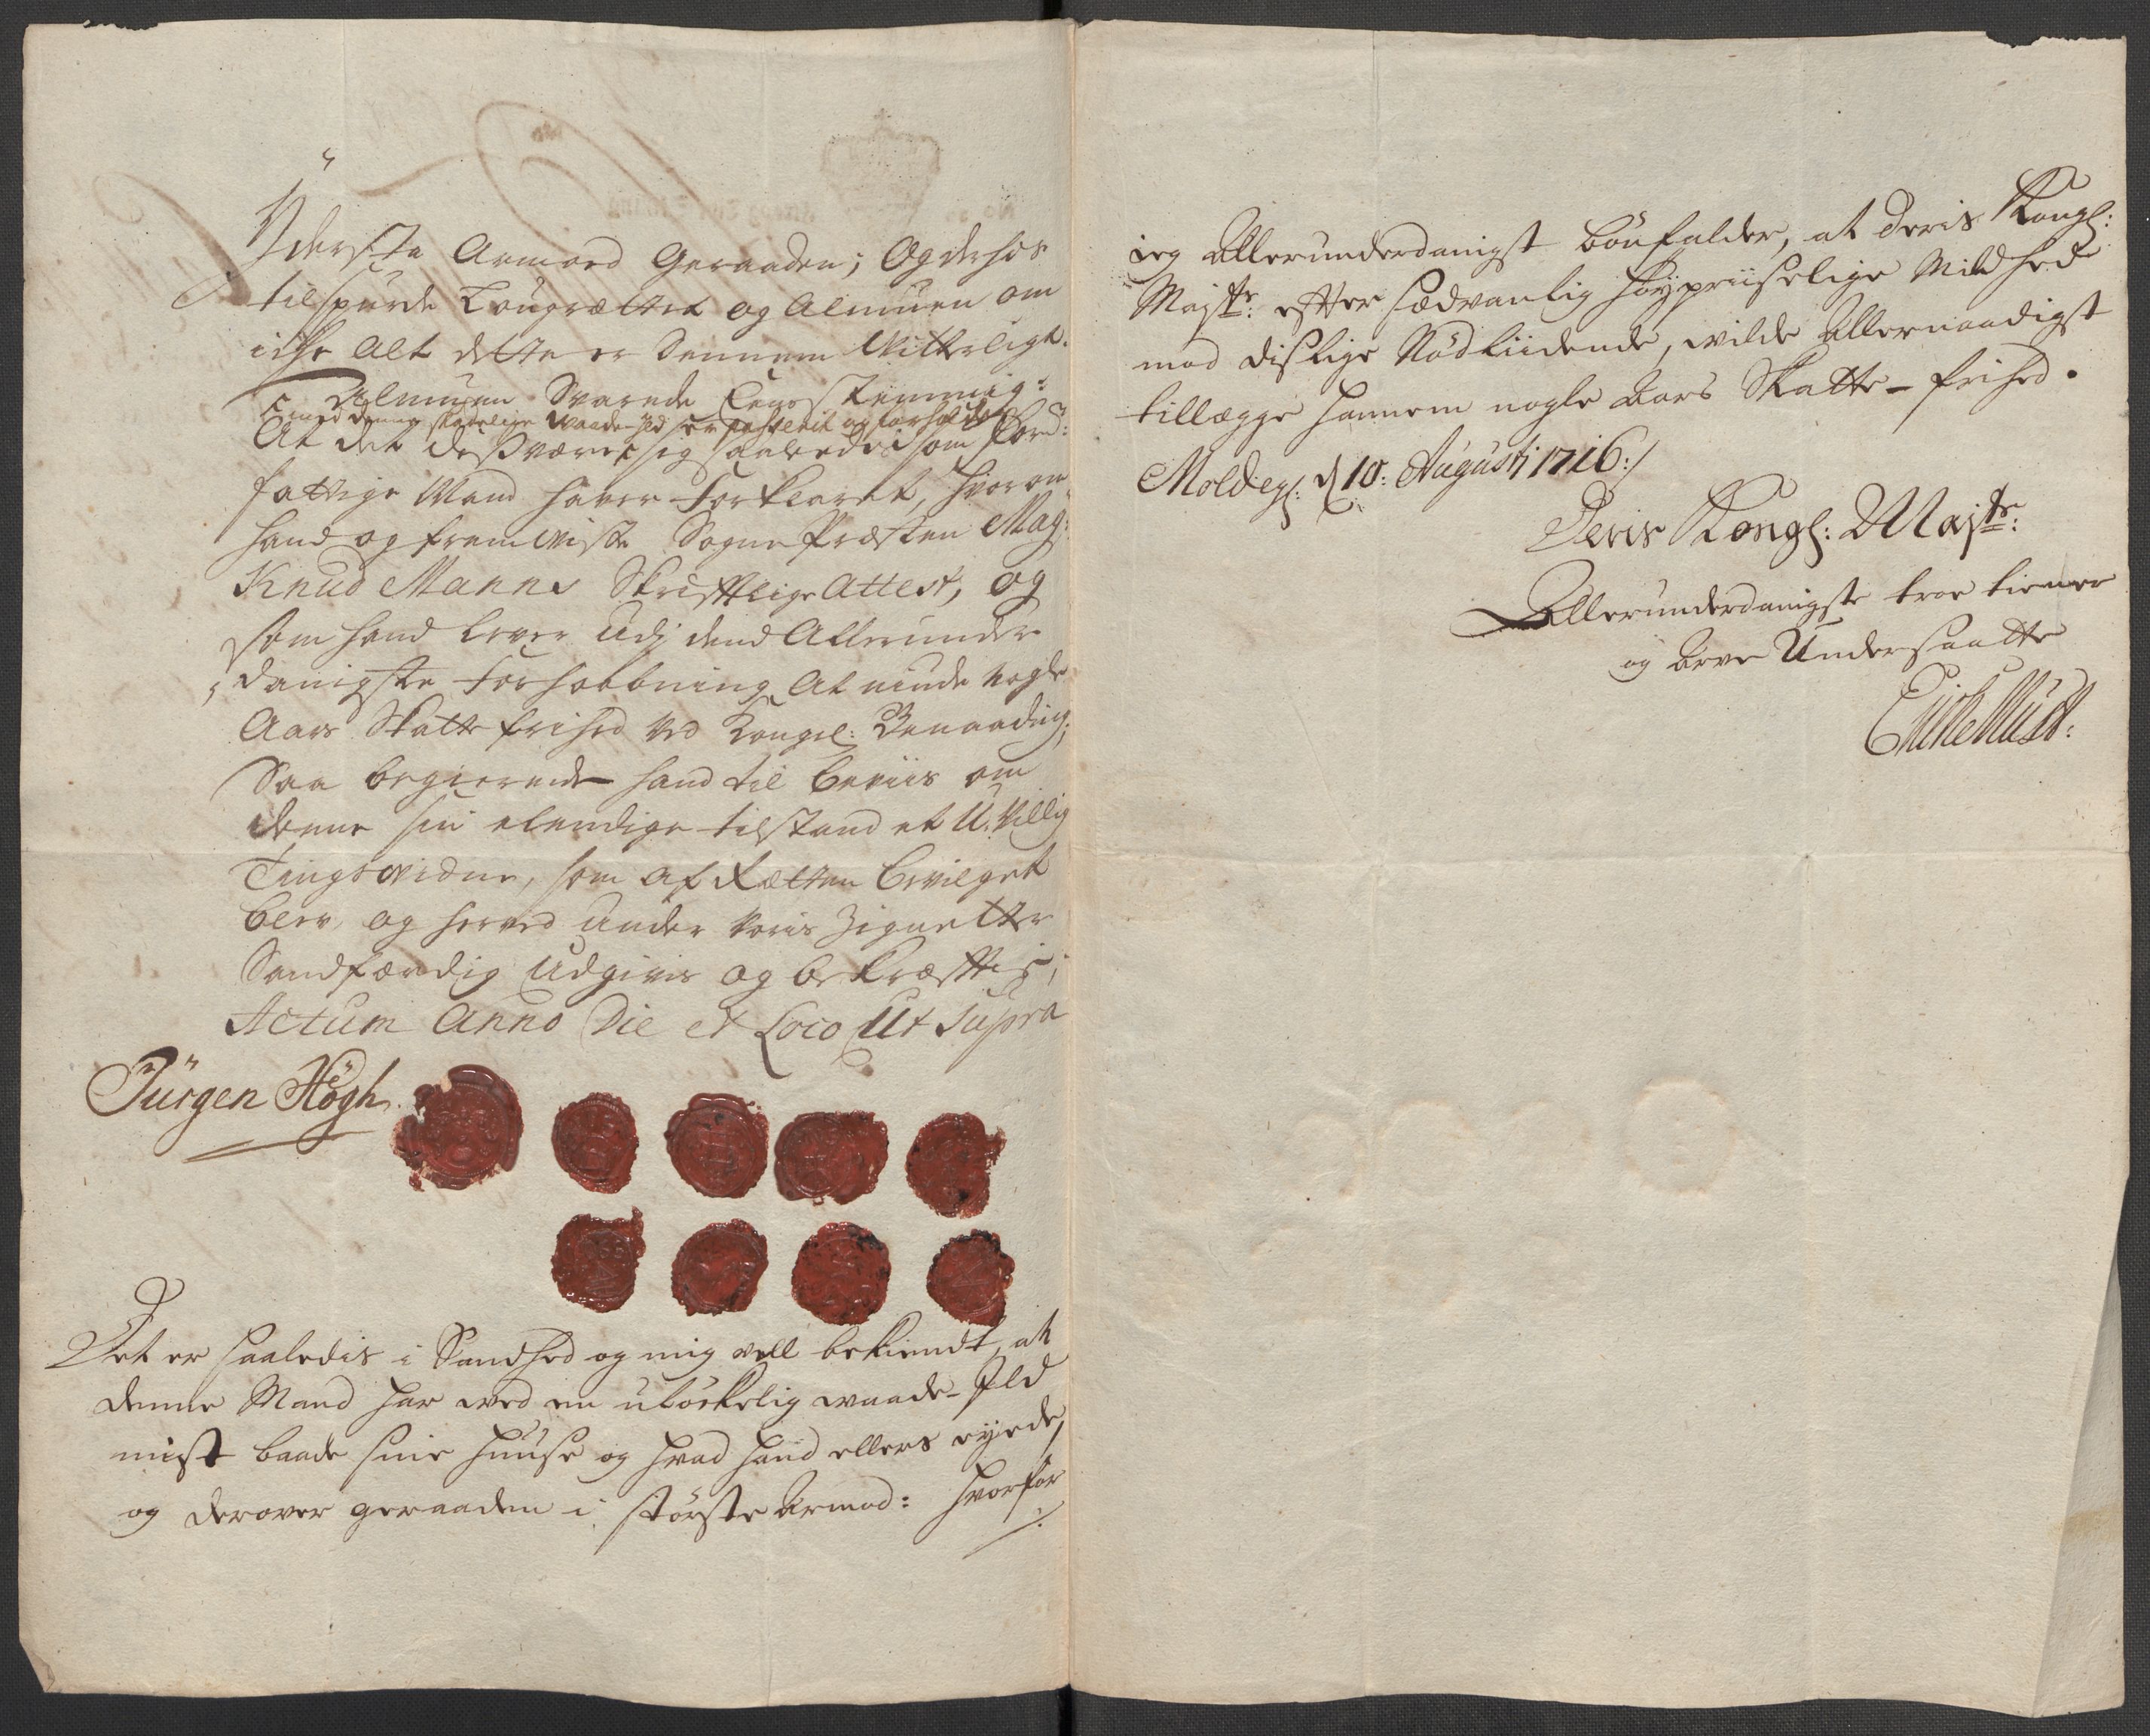 Yderste Armoed Geraaden; Og derhos
tilspurde Lougrættet og Almuen om
icke Alt dette er dennem Witterligt.
Almuen Svarede Eenstemmig:
med denne skadelige Waade-Ild er passerit og forholder
At det disværre sig saaledis som Forn:
fattige Mand haver Forklaret, hvor om
hand og fremviste Sogne Præsten Mag:
Knud Manns Skrifftlige Attest, og
som hand lever udj dend Allerunder
danigste Forhaabning At niude nogle
Aars Skatte frihed ved Kongel: Benaading;
Saa begierede hand til beviis om
denne sin elendige tilstand et U-Villig
Tingsvidne, som af Rætten bevilget
blev, og herved under voris Zignetter
Sandfærdig Udgives og bekræfftis;
Actum Anno Die et Loco Ut supra
Jürgen Högh.
Det er saaledis i Sandhed og mig vell bekiendt, at
denne Mand har ved en ulöckelig waade-Ild
mist baade sine Huuse og hvad hand ellers eyede,
og derover geraaden i störste Armod: hvorfor
ieg Allerunderdanigst bönfalder, at Deris Kongl:
Majtz: efter sædvanlig höypriiselige Mildhed
mod dislige Nödliidende, wilde Allernaadigst
tillægge hannem nogle Aars Skatte-frihed.
Moldeg: d 10: Augusti 1716:/
Deris Kongl: Majts:
Allerunderdanigste troe tiener
og Arve Undersaatte
Erich Must: